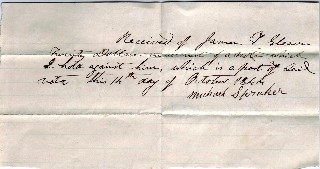 Received of James T Gleason
Twenty Dollars on a note which
I hold against him, which is a part of said
note this 14th day of October 1844
Michael Spooker